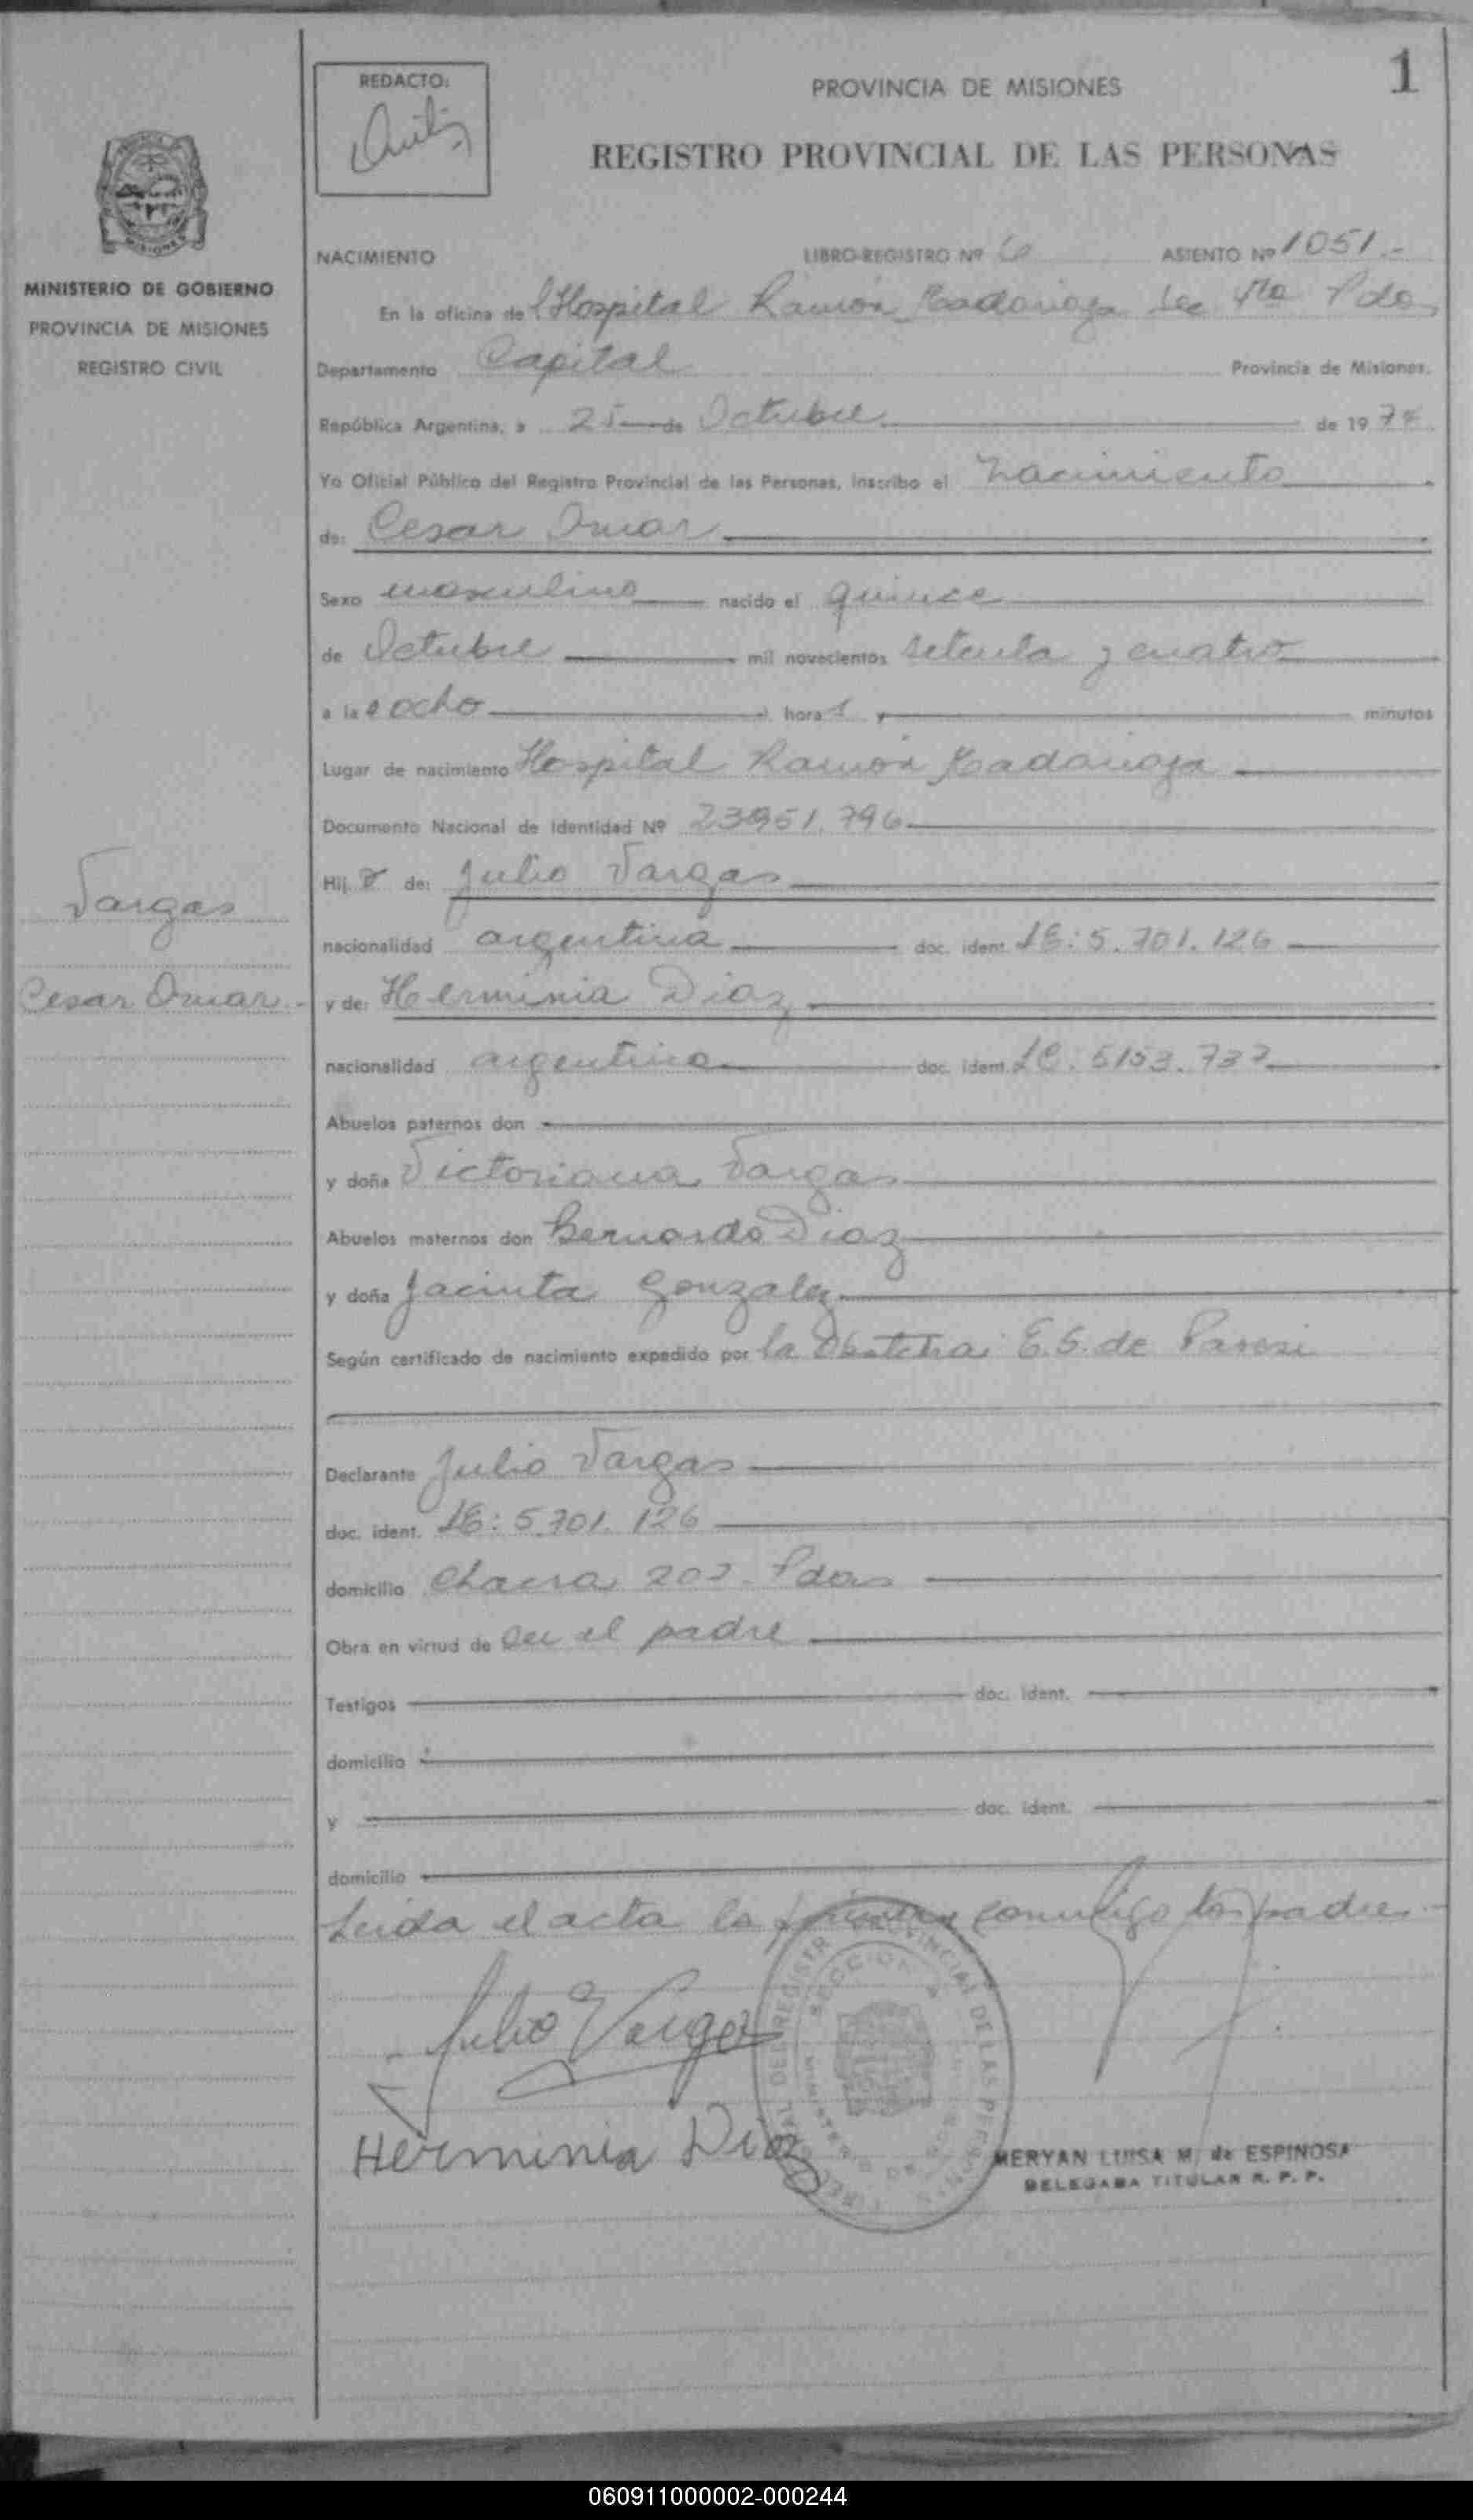 1
REDACTO:
PROVINCIA DE MISIONES
REGISTRO PROVINCIAL DE LAS PERSONAS
MISIONES
MINISTERIO DE GOBIERNO
PROVINCIA DE MISIONES
REGISTRO CIVIL
NACIMIENTO LIBRO-REGISTRO Nº 6 ASIENTO Nº 1051.-
En la oficina del Hospital Ramón Madariaga Sec 4ta Pdas
Departamento Capital Provincia de Misiones.
República Argentina, a 25 de Octubre de 1974
Yo Oficial Público del Registro Provincial de las Personas, inscribo el nacimiento
de: Cesar Omar
Sexo masculino nacido el quince
de Octubre mil novecientos setenta y cuatro
a las ocho hora s y minutos
Lugar de nacimiento Hospital Ramón Madariaga
Documento Nacional de Identidad Nº 23951.796
Hij o de: Julio Vargas
Vargas
nacionalidad argentina doc. ident. LE: 5.701.126
Cesar Omar.-
y de: Herminia Diaz
nacionalidad argentina doc. ident. LC: 5153.737
Abuelos paternos don
y doña Victoriana Vargas
Abuelos maternos don Bernardo Diaz
y doña Jacinta Gonzalez
Según certificado de nacimiento expedido por la Obstetra E.S. de
Declarante Julio Vargas
doc. ident. LE: 5.701.126
domicilio Chacra 202. Pdas
Obra en virtud de ser el padre
Testigos doc. ident.
domicilio
y doc. ident.
domicilio
Leida el acta la firman conmigo los padres.-
Julio Vargas
Herminia Diaz
MERYAN LUISA M. de ESPINOSA
DELEGADA TITULAR R. P. P.
060911000002-000244